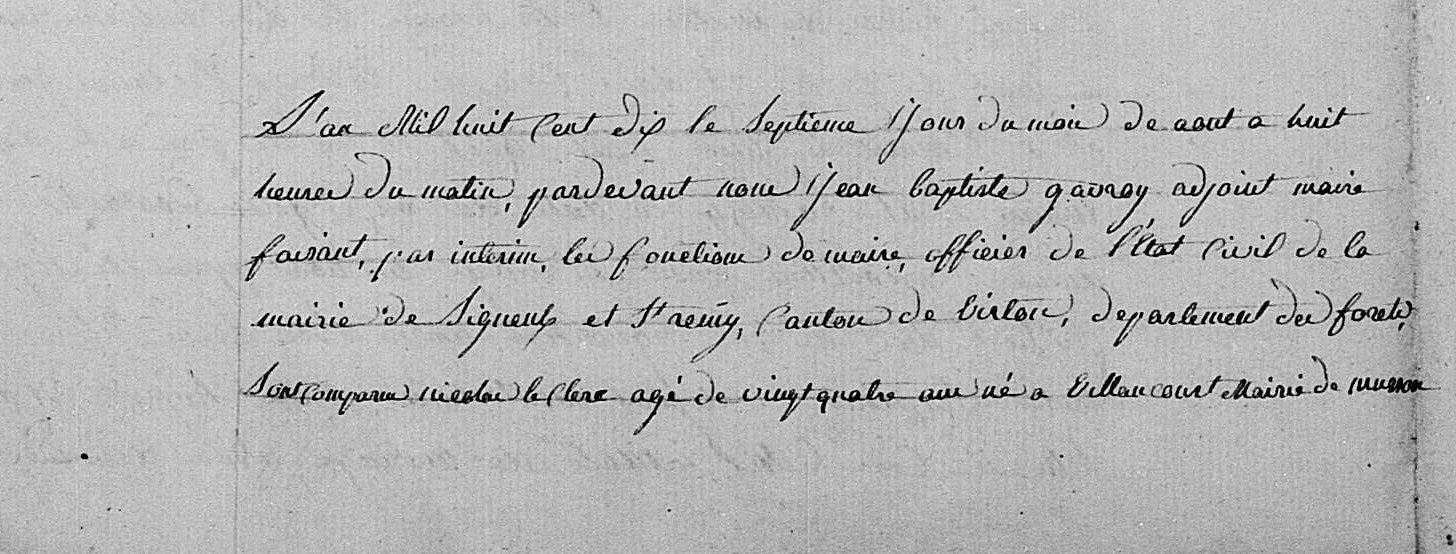 L'an Mil huit Cent dix le Septieme Jour du mois de aout a huit
heures du matin, pardevant nous Jean baptiste gavroy adjoint maire
faisant, par interim, les fonctions de maire, officier de l'Etat Civil de la
mairie de Signeulx et St remÿ, Canton de Virton, departement des forets,
Sont Comparus nicolas le Clerc agé de vingt quatre ans né a Villancourt Mairie de musson